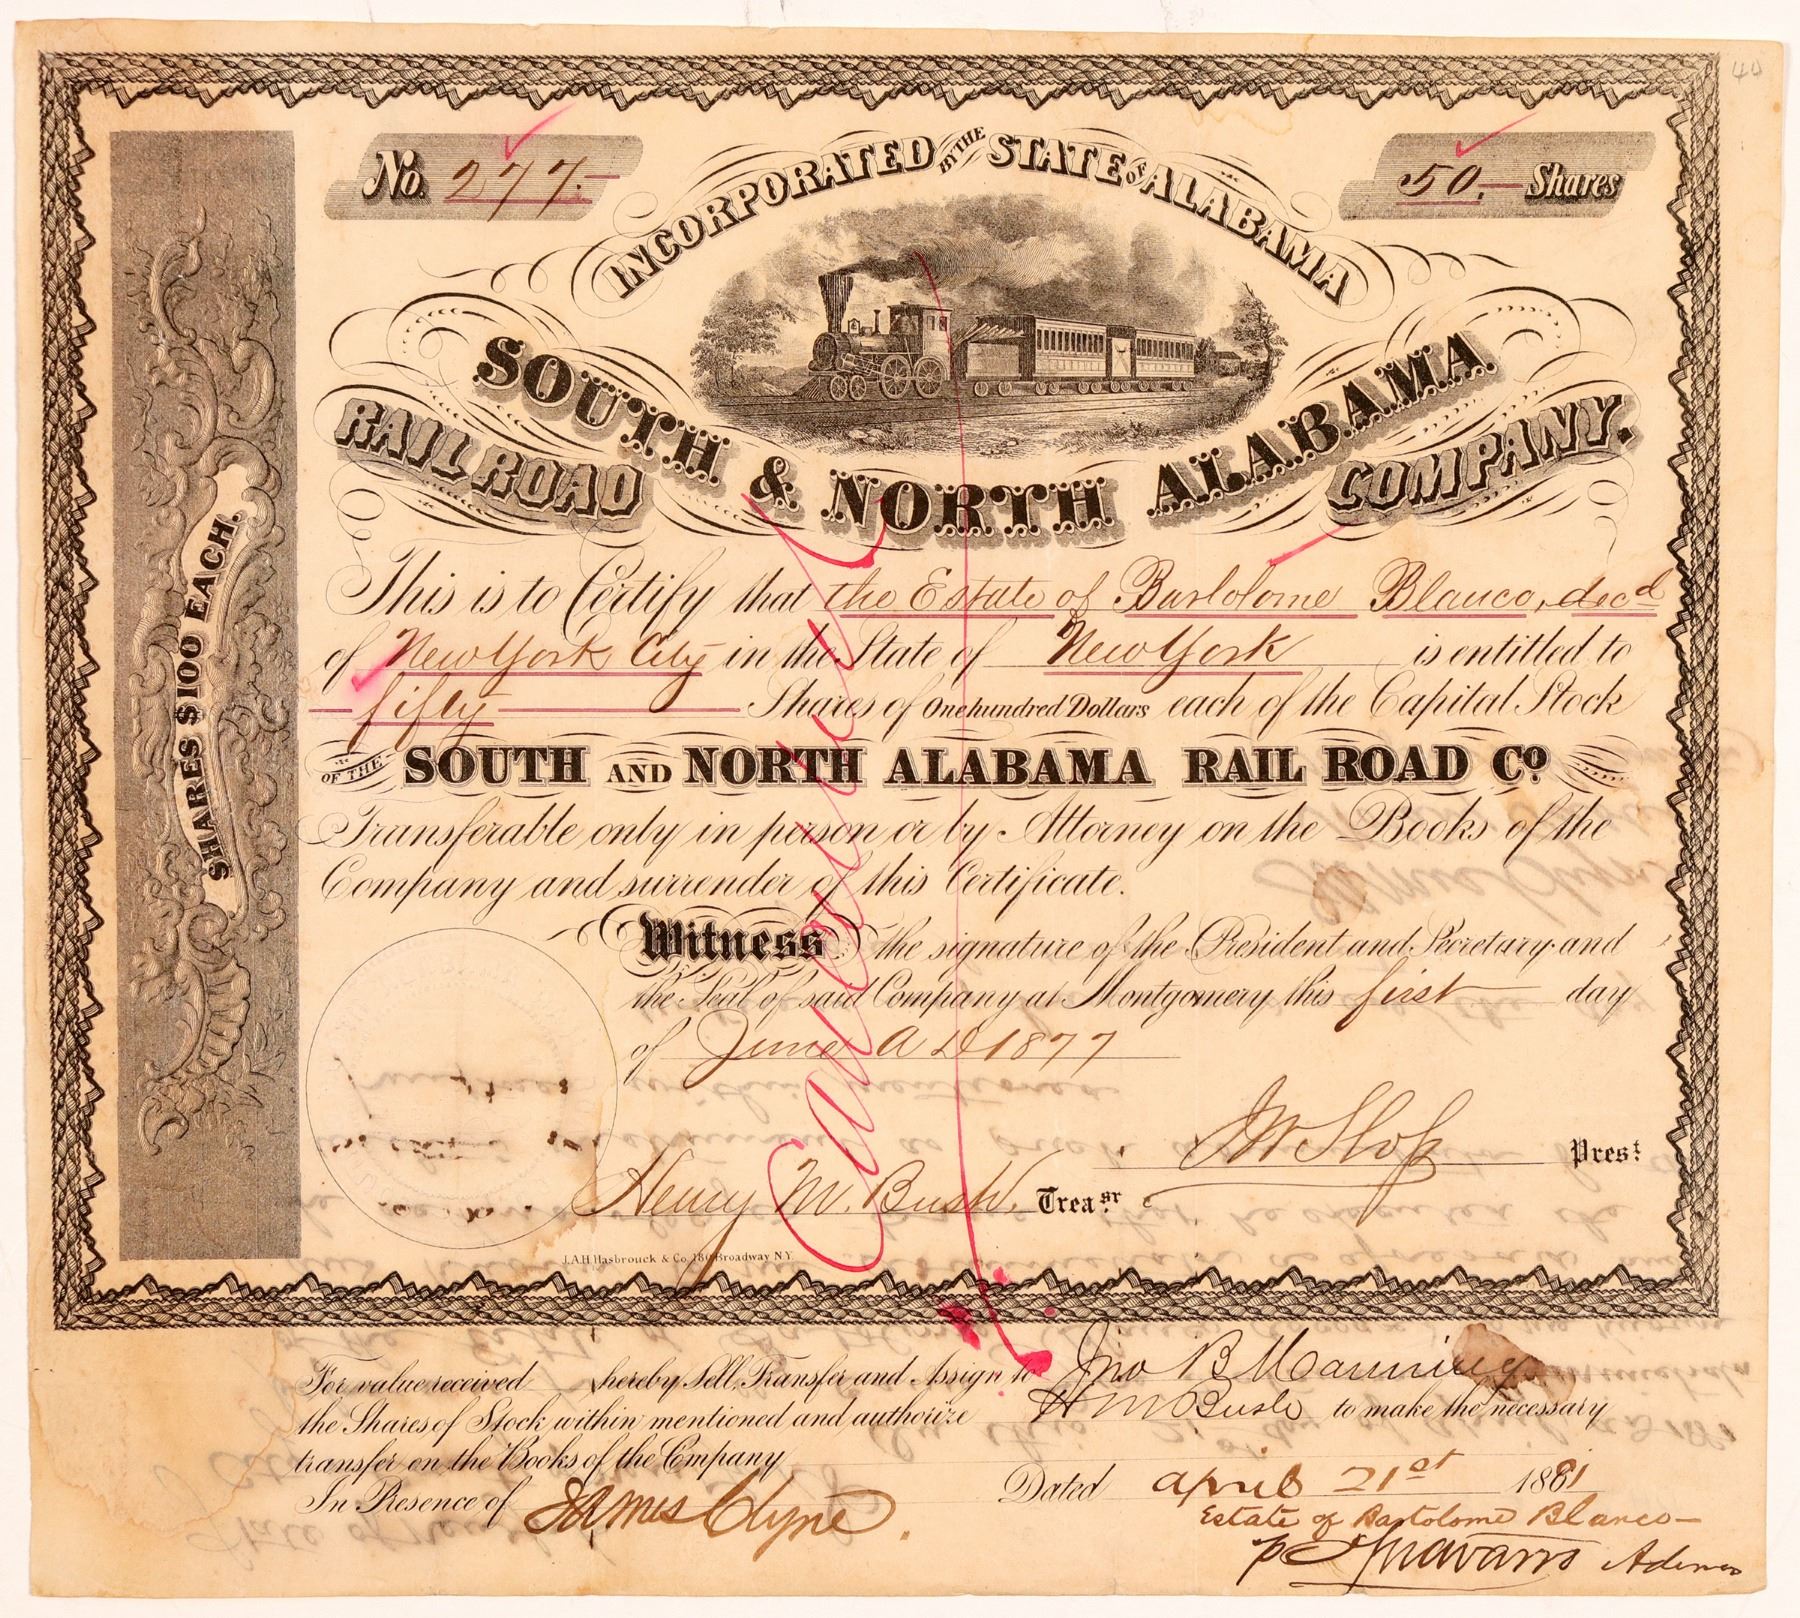 44
No. 277.
50. Shares
INCORPORATED BY THE STATE OF ALABAMA
SOUTH & NORTH ALABAMA
RAIL ROAD COMPANY.
SHARES $100 EACH.
This is to Certify that the Estate of Bartolome Blanco, decd
of New York City in the State of New York is entitled to
fifty Shares of One hundred Dollars each of the Capital Stock
OF THE SOUTH AND NORTH ALABAMA RAIL ROAD Co.
Transferable only in person or by Attorney on the Books of the
Company and surrender of this Certificate.
Witness the signature of the President and Secretary and
the Seal of said Company at Montgomery this first day
of June A D 1877
Cancelled
Prest.
Henry M. Bush. Treasr.
J.A.H. Hasbrouck & Co. 180 Broadway N.Y.
For value received hereby Sell, Transfer and Assign to Jno B Manning
the Shares of Stock within mentioned and authorize H M Bush to make the necessary
transfer on the Books of the Company
Dated april 21st 1881
In Presence of James Clyne.
Estate of Bartolome Blanco